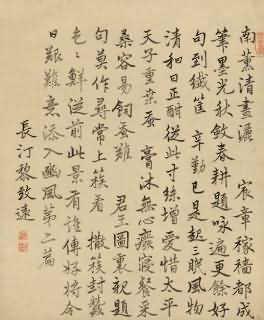 南薰清晝灑 宸章稼穡都成
筆墨光秋斂春耕題詠遍更餘好
句到纖筐 辛勤已是起眠風物
清和日正酣從此寸絲增愛惜太平
天子重桑蠶 膏沐無心廢寢餐采
桑容易飼蠶難 君王圖裏親題
句莫作尋常上簇看 簇封
色色鮮從前此景有誰傳好將今
日艱難意添入豳風第二篇
長汀黎致遠